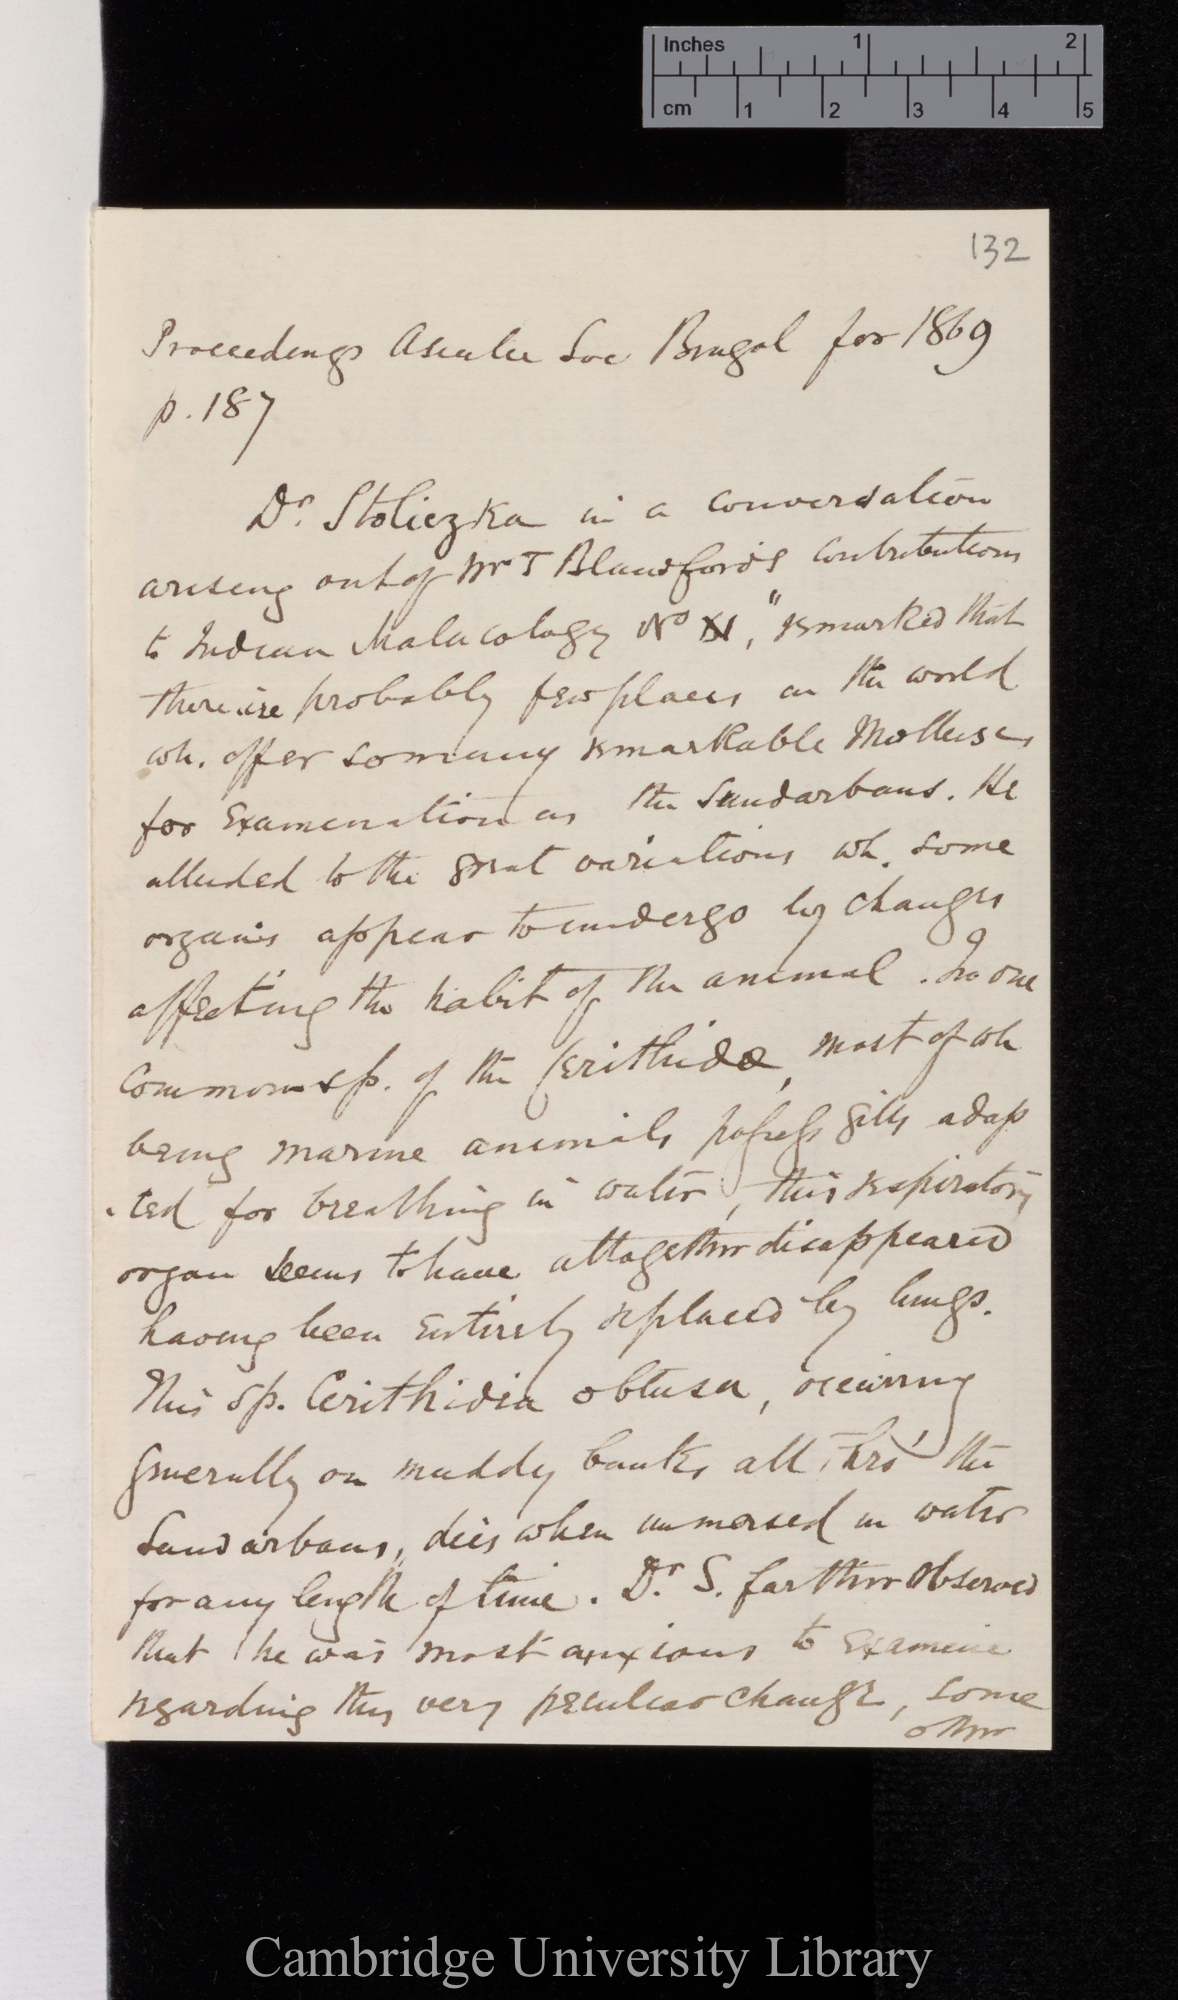 Inches 1 2
cm 1 2 3 4 5
132
Proceedings Asiatic Soc Bengal for 1869
p. 187
Dr. Stoliczka in a conversation
arising out of Mr T Blandford's contributions
to Indian Malacology No XI," remarked that
there are probably few places in the world
wh. offer so many remarkable Molluscs
for examination as the Sundarbans. He
alluded to the great variations wh. some
organs appear to undergo by changes
affecting the habit of the animal. In one
common sp. of the Cerithidæ, most of wh
being marine animals possess gills adap
-ted for breathing in water, this respiratory
organ seems to have altogether disappeared
having been entirely replaced by lungs.
This sp. Cerithidia obtusa, occurring
generally on muddy banks all thro' the
Sundarbans, dies when immersed in water
for any length of time. Dr. S. farther observed
that he was most anxious to examine
regarding this very peculiar change, some
other
Cambridge University Library